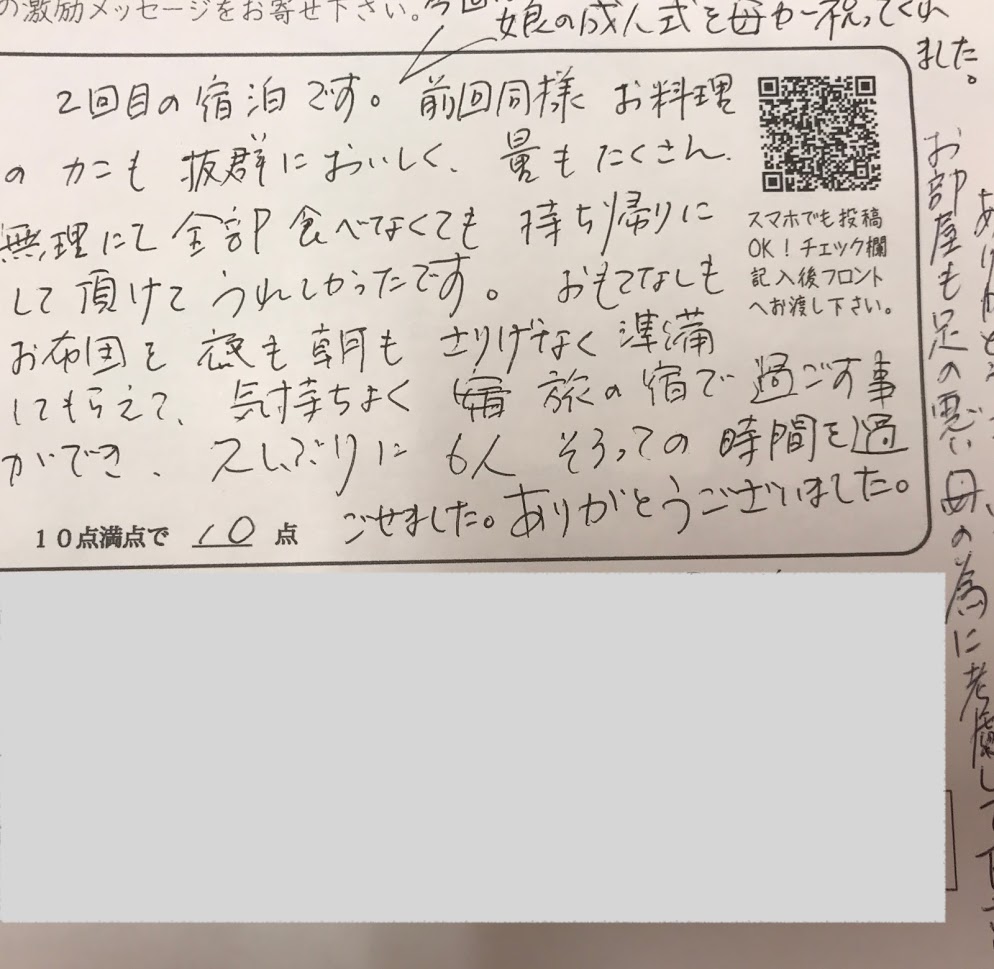 の激励メッセージをお寄せ下さい。
今回
娘の成人式を母が祝ってくれ
ました。
2回目の宿泊です。前回同様 お料理
の カニも 抜群に おいしく、量も たくさん、
無理にて 全部 食べなくても 持ち帰りに
して 頂けて うれしかったです。 おもてなしも
お布団を 夜も 朝も さりげなく 準備
してもらえて、気持ちよく 旅の宿で 過ごす事
ができ、久しぶりに 6人 そろっての 時間を過
ごせました。ありがとうございました。
スマホでも投稿
OK！チェック欄
記入後フロント
へお渡し下さい。
10点満点で 10 点
お部屋も足の悪い母の為に考慮して下さ
ありがとう